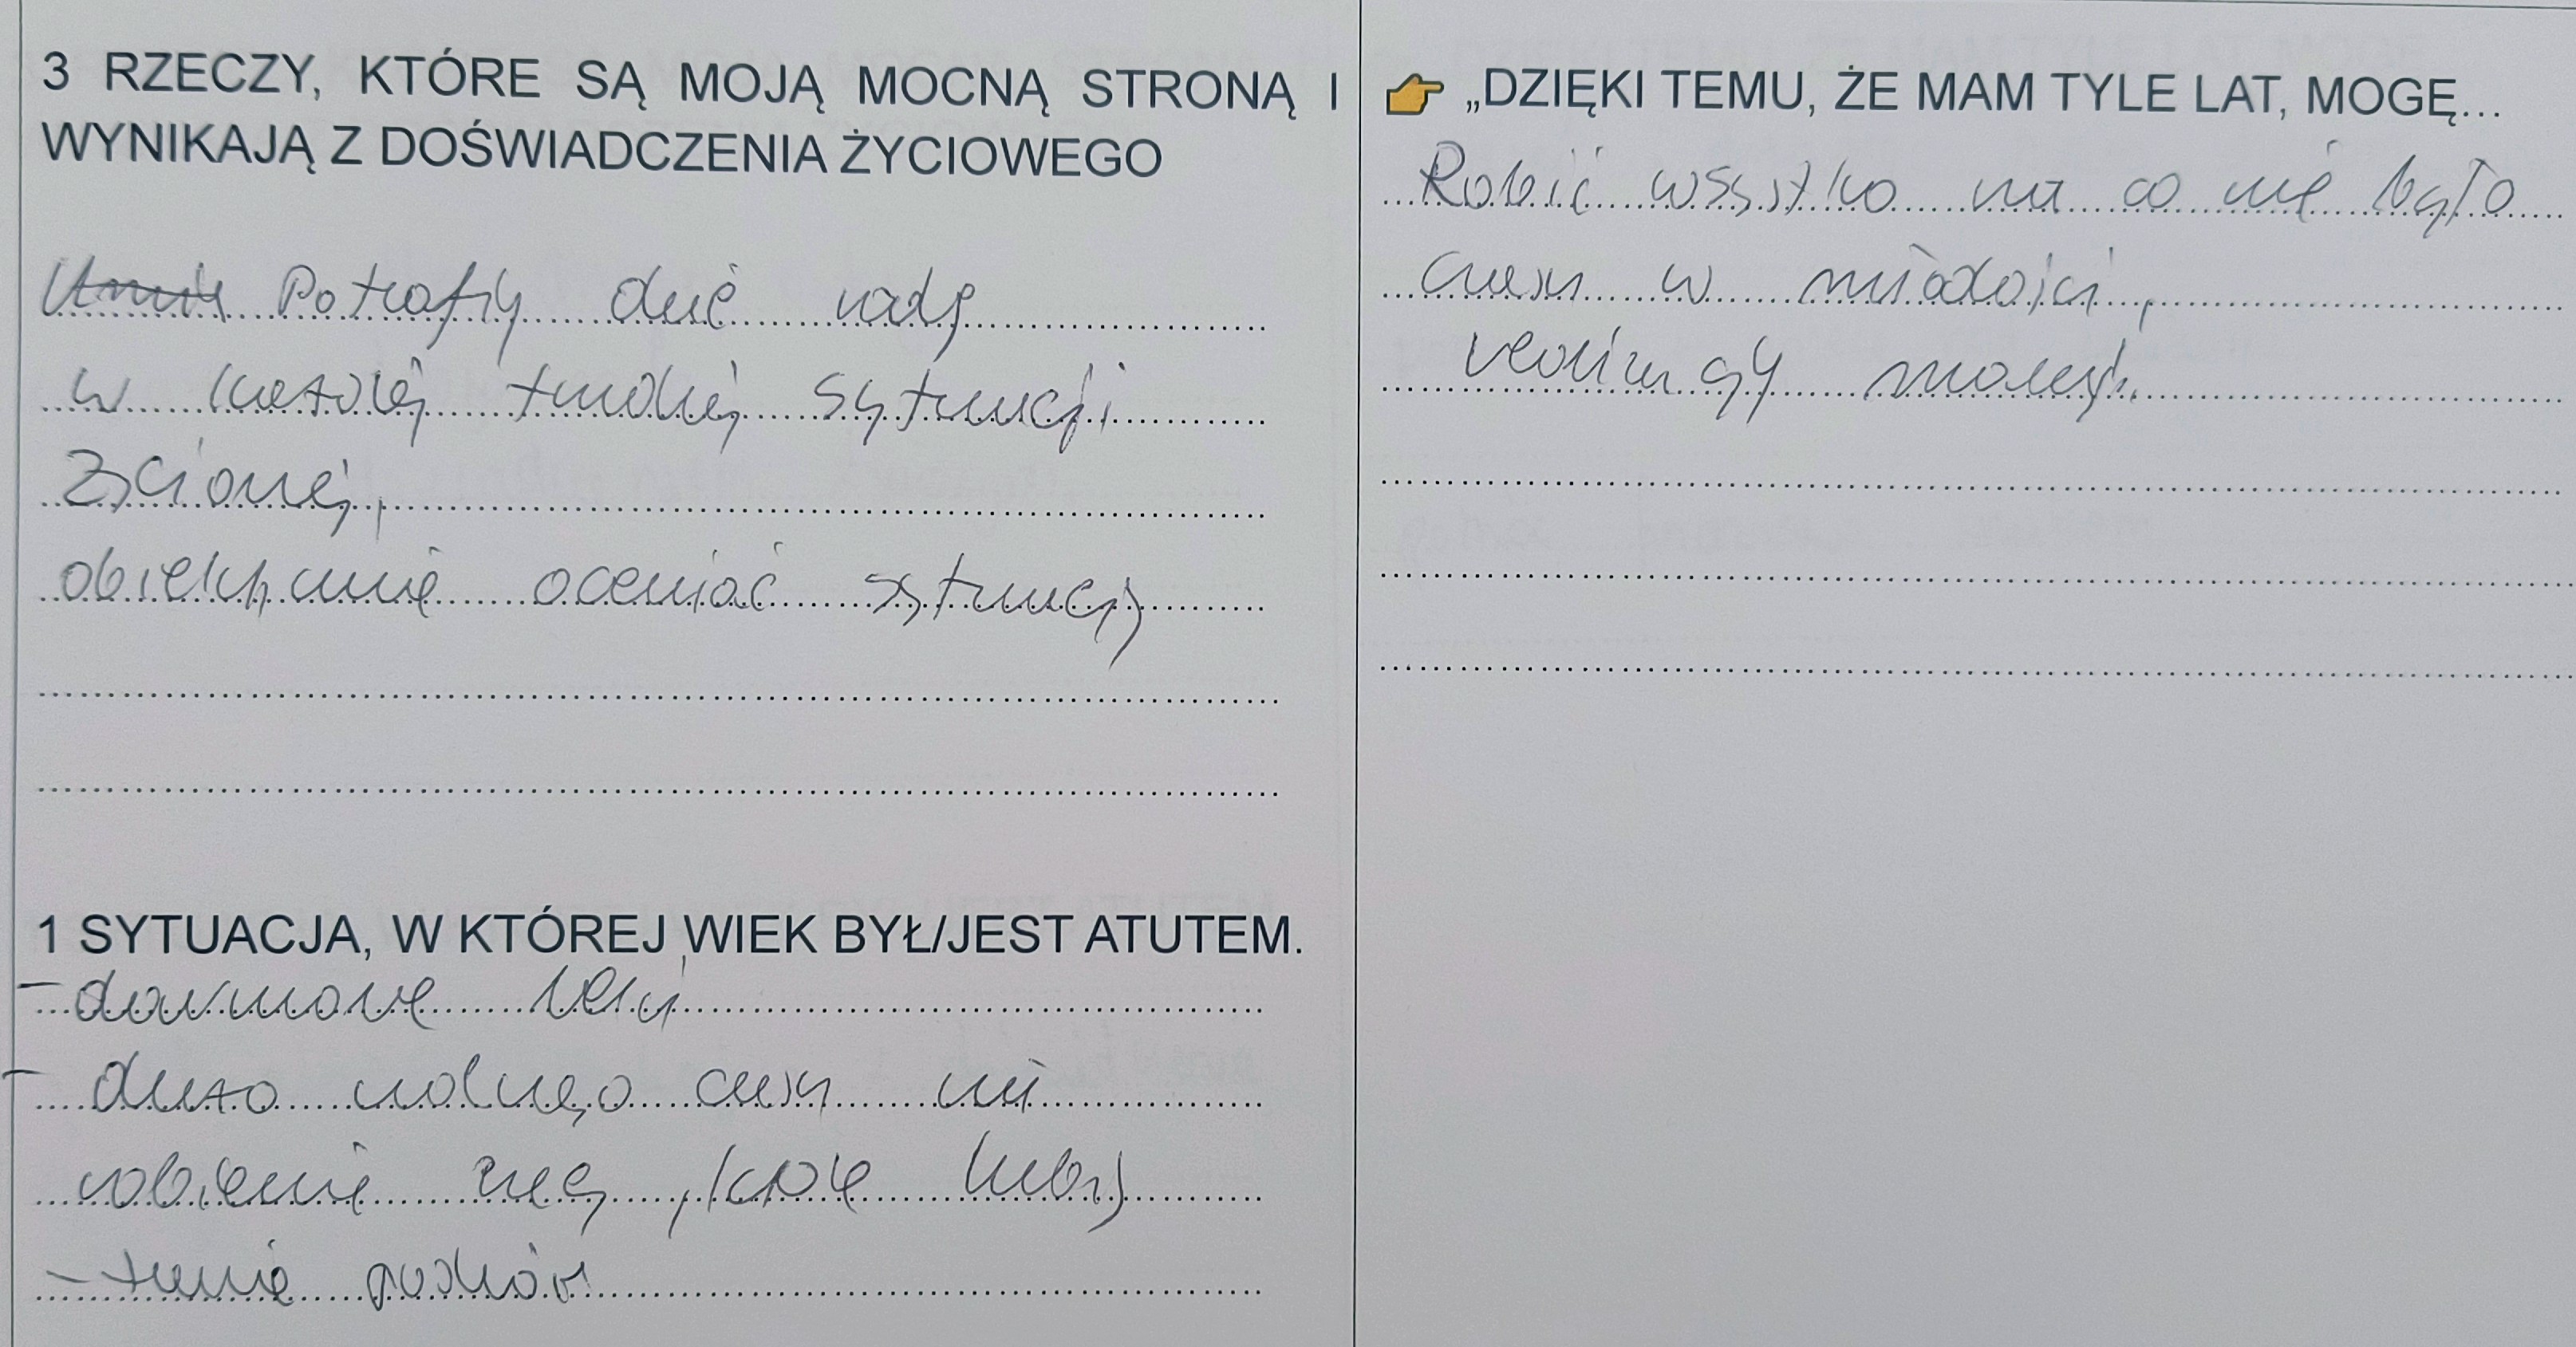 3 RZECZY, KTÓRE SĄ MOJĄ MOCNĄ STRONĄ I
WYNIKAJĄ Z DOŚWIADCZENIA ŻYCIOWEGO
Potrafię dać radę
w każdej trudnej sytuacji
życiowej,
obiektywnie oceniać sytuację
1 SYTUACJA, W KTÓREJ WIEK BYŁ/JEST ATUTEM.
- darmowe leki
- dużo wolnego czasu na
robienie rzeczy, które lubię
- tanie podróże
👉 „DZIĘKI TEMU, ŻE MAM TYLE LAT, MOGĘ...
Robić wszystko na co nie było
czasu w młodości,
realizację marzeń.